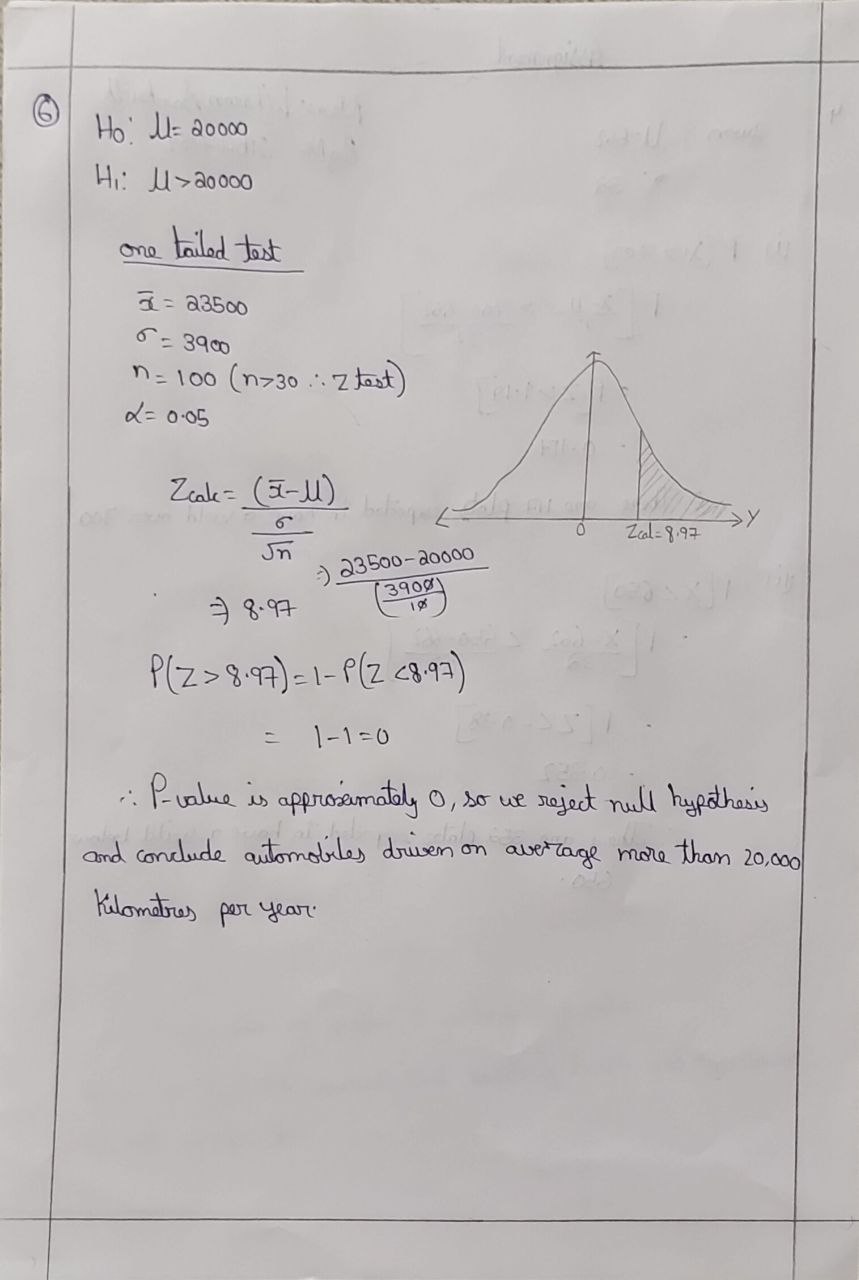 6
H0: μ= 20000
H1: μ>20000
one tailed test
x̄ = 23500
σ = 3900
n = 100 (n>30 ∴ Z test)
α= 0.05
Zcalc = (x̄-μ) / (σ/√n)
⇒ 23500-20000 / (3900/10)
⇒ 8.97
0 Zcal=8.97 Y
P(Z>8.97)=1-P(Z<8.97)
= 1-1=0
∴ P-value is approximately 0, so we reject null hypothesis
and conclude automobiles driven on average more than 20,000
Kilometres per year.